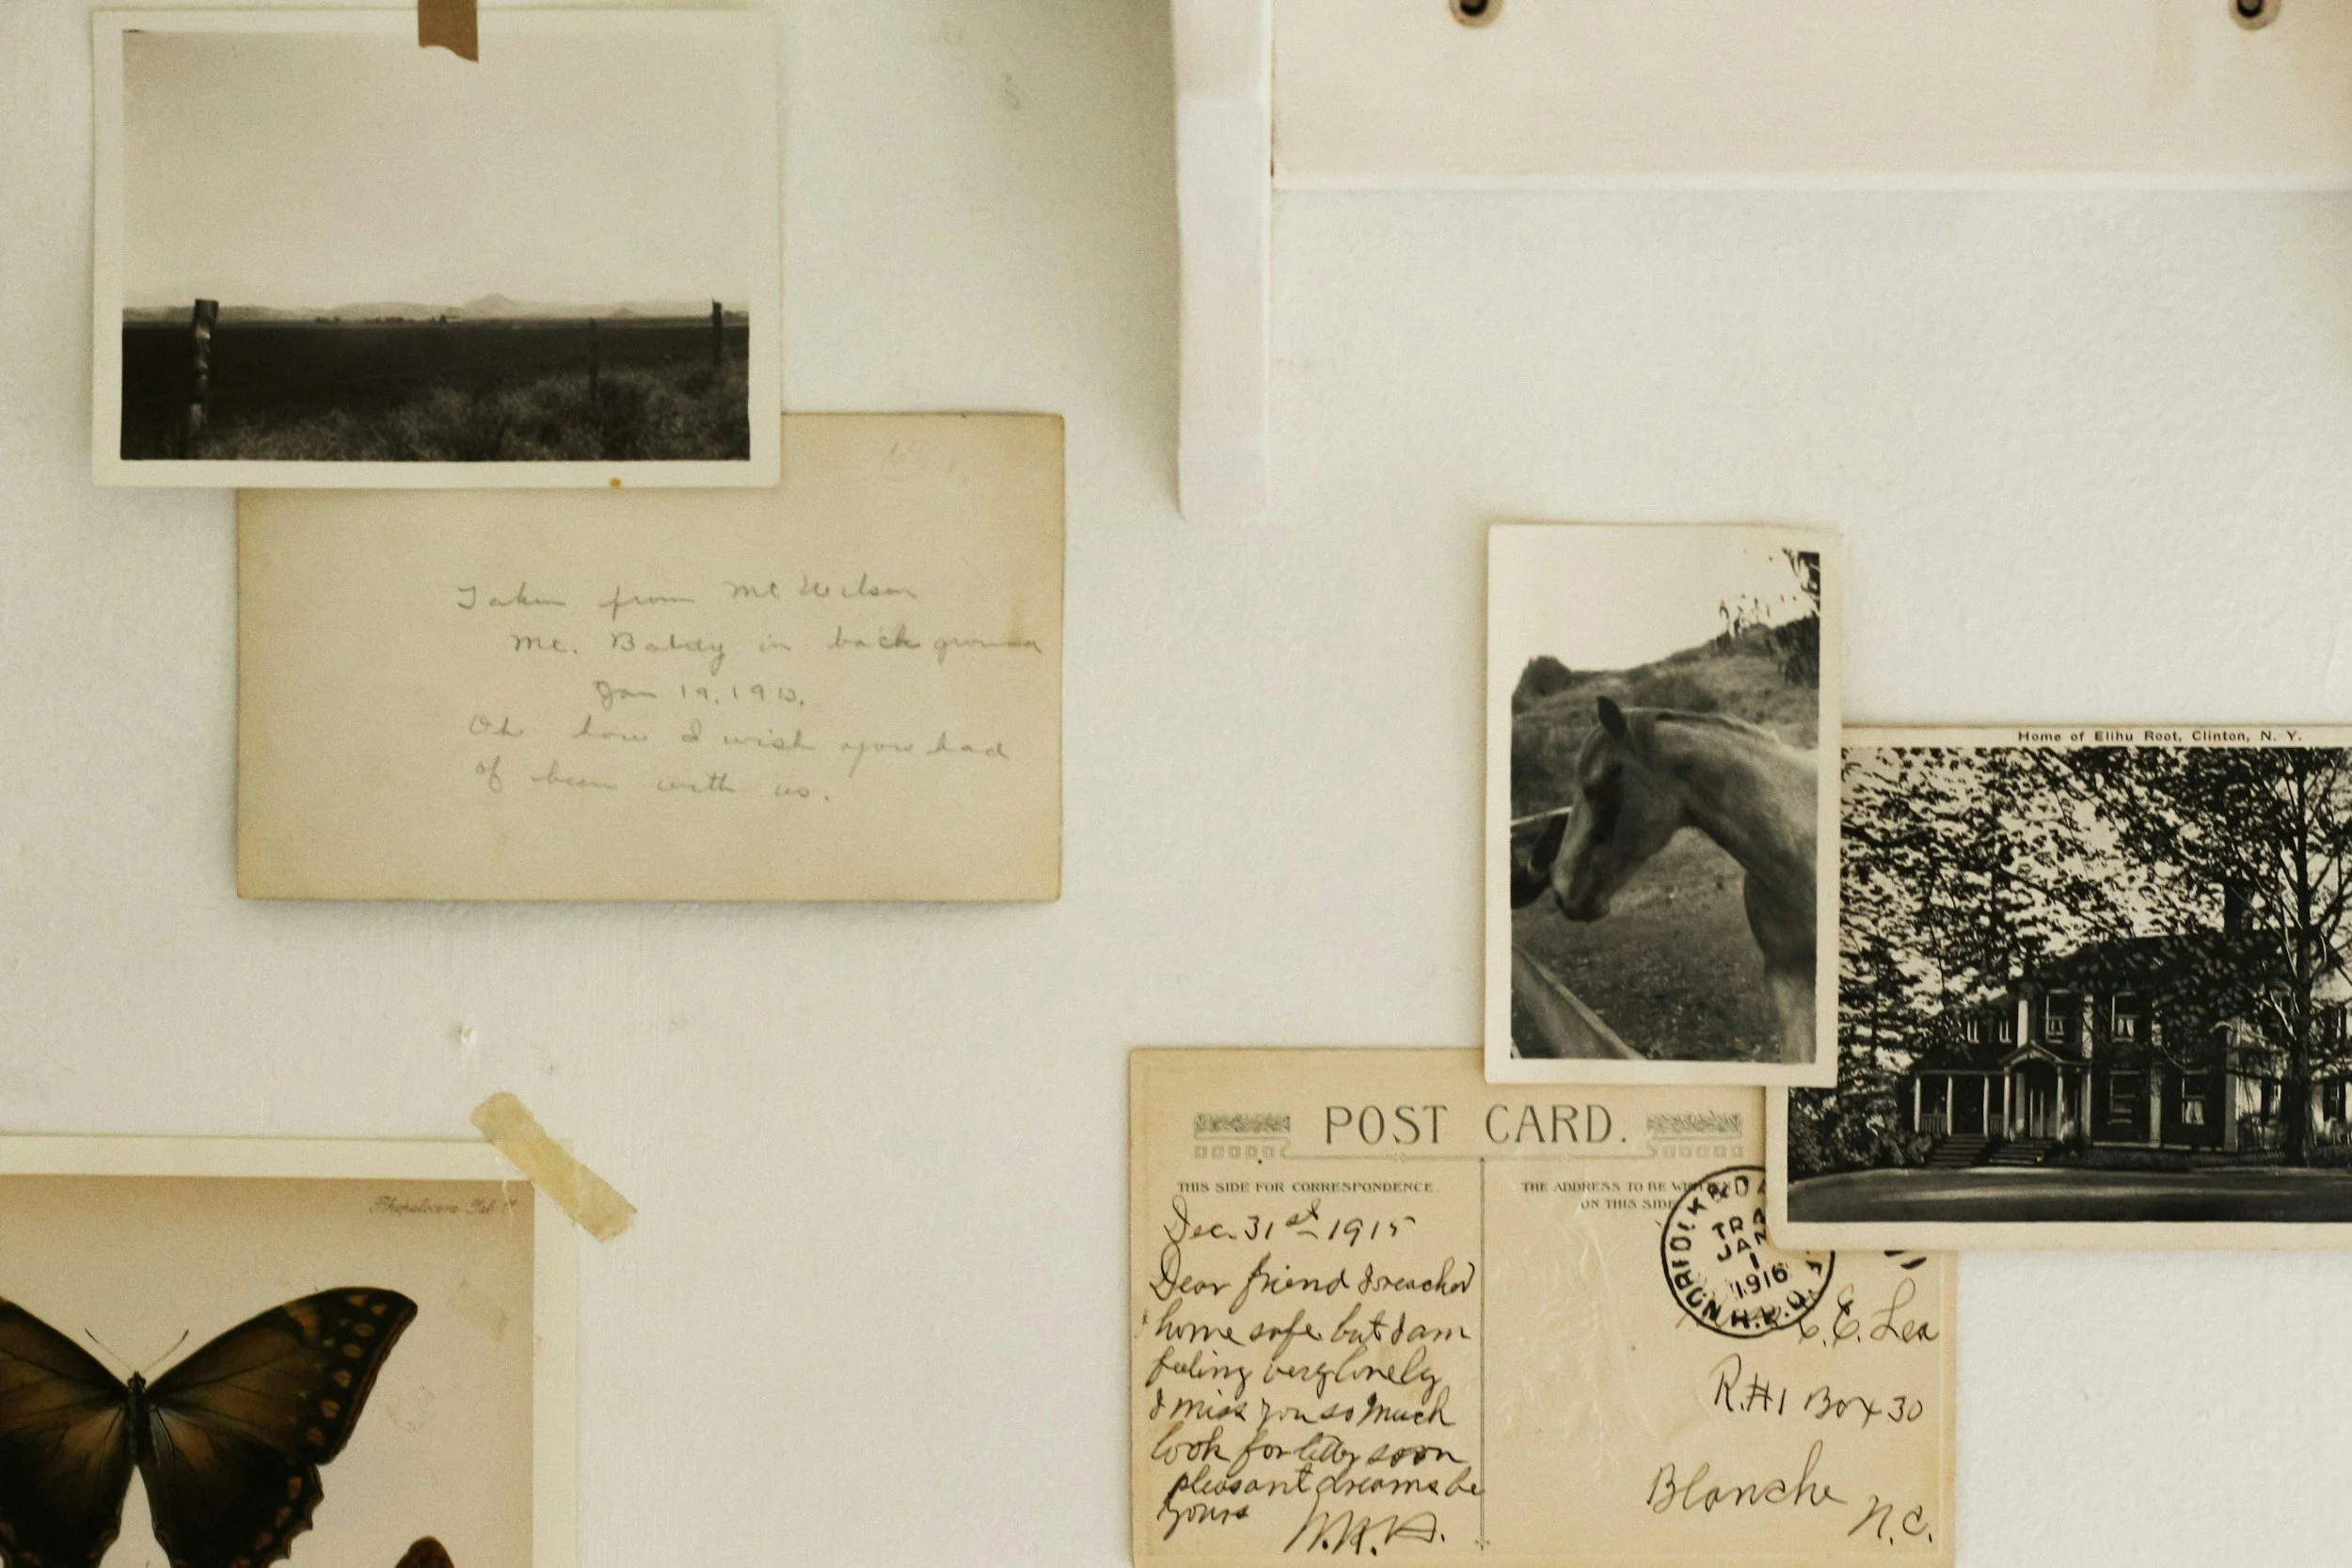 Taken from Mt Wilson
Mt. Baldy in back ground
Jan 19, 1913.
Oh how I wish you had
of been with us.
Home of Elihu Root, Clinton, N. Y.
POST CARD.
THIS SIDE FOR CORRESPONDENCE.
THE ADDRESS TO BE
ON THIS SIDE
Dec. 31st 1915
Dear friend I reached
home safe but I am
feeling very lonely
I miss you so much
look for letter soon
pleasant dreams be
yours
JAN
1
1916
C. E. Lea
R.#1 Box 30
Blanche
N.C.
Rhopalocera